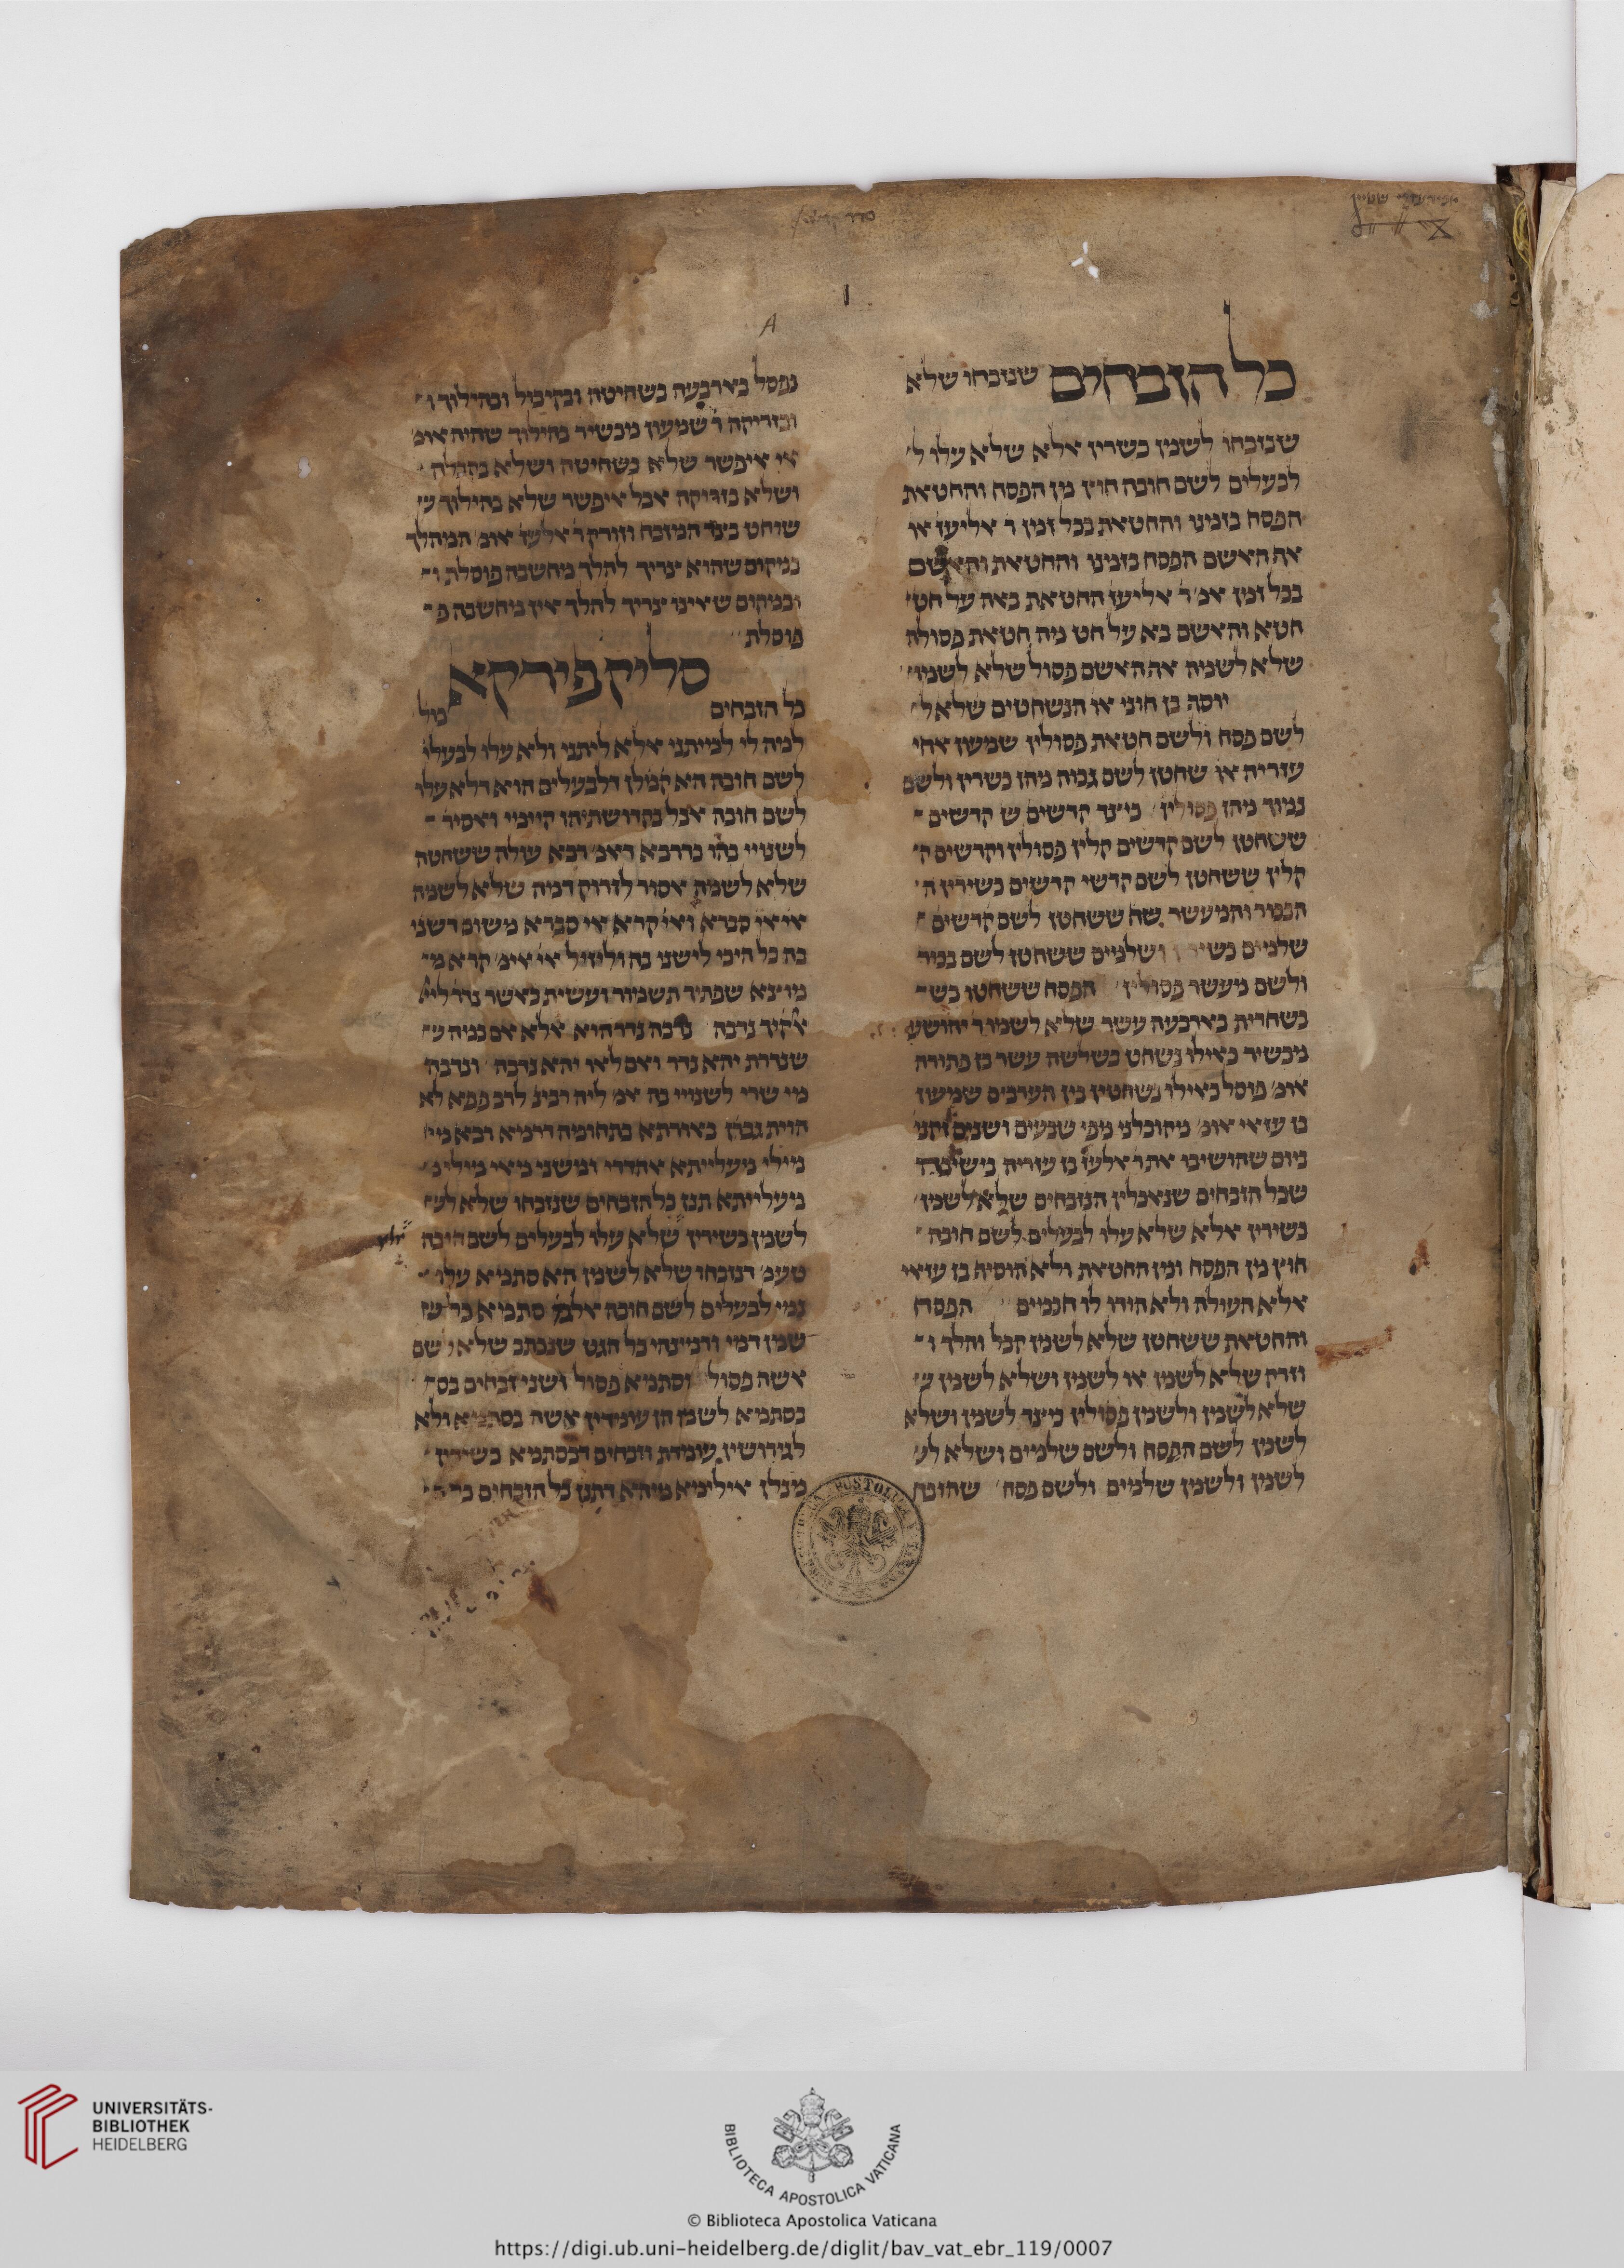 כל הזבחים שנזבחו שלא
שנזבחו לשמן כשרין אלא שלא עלו ל׳
לבעלים לשם חובה חוץ מן הפסח והחטאת
הפסח בזמינו והחטאת בכל זמן ר׳ אליעז או׳
אף האשם הפסח בזמינו והחטאת והאשם
בכל זמן אמ׳ ר׳ אליעז החטאת באה על חט׳
חטא והאשם בא על חט מה חטאת פסולה
שלא לשמה אף האשם פסול שלא לשמו
יוסה בן חוני או׳ הנשחטים שלא ל׳
לשם פסח ולשם חטאת פסולין שמעון אחי
עזריה או׳ שחטן לשם גבוה מהן כשרין ולשם
נמוך מהן פסולין כיצד קדשים ש קדשים
ששחטן לשם קדשים קלין פסולין וקדשים ק׳
קלין ששחטן לשם קדשי קדשים כשירין ה׳
הבכור והמעשר שח ששחטן לשם קדשים
שלמים ושלמים ששחטן לשם בכור
ולשם מעשר פסולין הפסח ששחטו בש
בשחרית בארבעה עשר שלא לשמו ר׳ יהושע
מכשיר כאילו נשחט בשלשה עשר בן פתורה
אומ׳ פוסל כאילו נשחטין בין הערבים שמעון
בן עזאי אומ׳ מקובלני מפי שבעים ושנים זקני
ביום שהושיבו את ר׳ אלעז׳ בן עזריה בישיבה
שכל הזבחים שנאכלין הנזבחים שלא לשמן
כשירין אלא שלא עלו לבעלים לשם חובה
חוץ מן הפסח ומן החטאת ולא הוסיף בן עזאי
אלא העולה ולא הודו לו חכמים הפסח
והחטאת ששחטן שלא לשמן קבל והלך ו
וזרק שלא לשמן או לשמן ושלא לשמן ש׳
שלא לשמן ולשמן פסולין כיצד לשמן ושלא
לשמן לשם הפסח ולשם שלמים ושלא לש׳
לשמן ולשמן שלמים ולשם פסח שהזבח
נפסל בארבעה בשחיטה ובקיבול ובהילוך ו
ובזריקה ר׳ שמעון מכשיר בהילוך שהיה אומ׳
אי איפשר שלא בשחיטה ושלא בקבלה
ושלא בזריקה אבל איפשר שלא בהילוך ש׳
שוחט בצד המזבח וזורק ר׳ אלעז׳ אומ׳ המהלך
במקום שהוא צריך להלך מחשבה פוסלת ו
ובמקום שאינו צריך להלך אין מחשבה פ
פוסלת
סליק פירקא
כל הזבחים
למה לי למיתני אלא ליתני ולא עלו לבעלי
לשם חובה הא קמ׳לן דלבעלים הוא דלא עלו
לשם חובה אבל בקדושתיהו קיימי ואסיר
לשנויי בהו כדרבא דאמ׳ רבא עולה ששחטה
שלא לשמה אסור לזרוק דמה שלא לשמה
אי אי׳ סברא ואי׳ קרא אי סברא משום דשני
בה כל היכי לישני בה וליזיל אי אימ׳ קרא מ
מוצא שפתיך תשמור ועשית כאשר נדר ליי
אלקיך נדבה נדבה נדר הוא אלא אם כמה ש
שנדרת יהא נדר ואם לאו יהא נדבה ונדבה
מי שרי לשנויי בה אמ׳ ליה רבינ׳ לרב פפא לא
הוית גבן באורתא בתחומא דרמא רבא מי
מילי מעלייתא אהדדי ומשני מאי מילי מ
מעלייתא תנן כל הזבחים שנזבחו שלא לש
לשמן כשירין שלא עלו לבעלים לשם חובה
טעמ׳ דנזבחו שלא לשמן הא סתמא עלו
נמי לבעלים לשם חובה אלמ׳ סתמא כלש
שמן דמי ורמינהי כל הגט שנכתב שלא לשם
אשה פסול וסתמא פסול ושני זבחים בס
בסתמא לשמן הן עומדין אשה בסתמא ולא
לגירושין עומדת וזבחים דבסתמא כשירין
מנלן אילימא מהא דתנן כל הזבחים
A
UNIVERSITÄTS-
BIBLIOTHEK
HEIDELBERG
BIBLIOTECA APOSTOLICA VATICANA
© Biblioteca Apostolica Vaticana
https://digi.ub.uni-heidelberg.de/diglit/bav_vat_ebr_119/0007